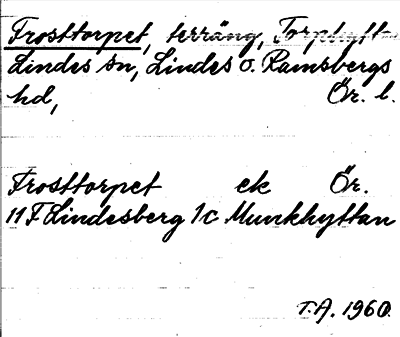 Frosttorpet, terräng, Torphytte
Lindes sn, Lindes o. Ramsbergs
hd, Ör. l.
Frosttorpet ek Ör.
11 F Lindesberg 1c Munkhyttan
T.A. 1960